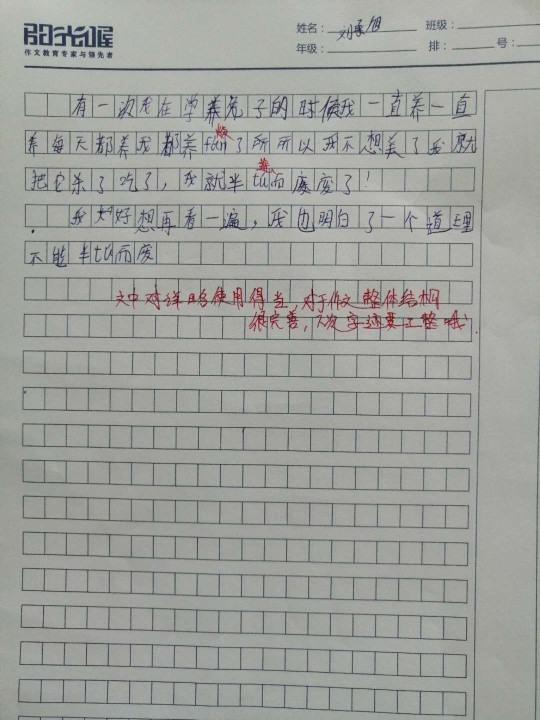 阳光喔
作文教育专家与领先者
姓名： 刘承旭 班级：
年级： 排： 号：
有一次我在学养兔子的时候我一直养一直
烦
养每天都养我都养fán了所所以我不想养了我就
途
把它杀了吃了，我就半tú而废废了！
我好好想再看一遍，我也明白了一个道理
不能半tú而废
文中对详略使用得当，对于作文整体结构
很完善，下次字迹要工整哦！